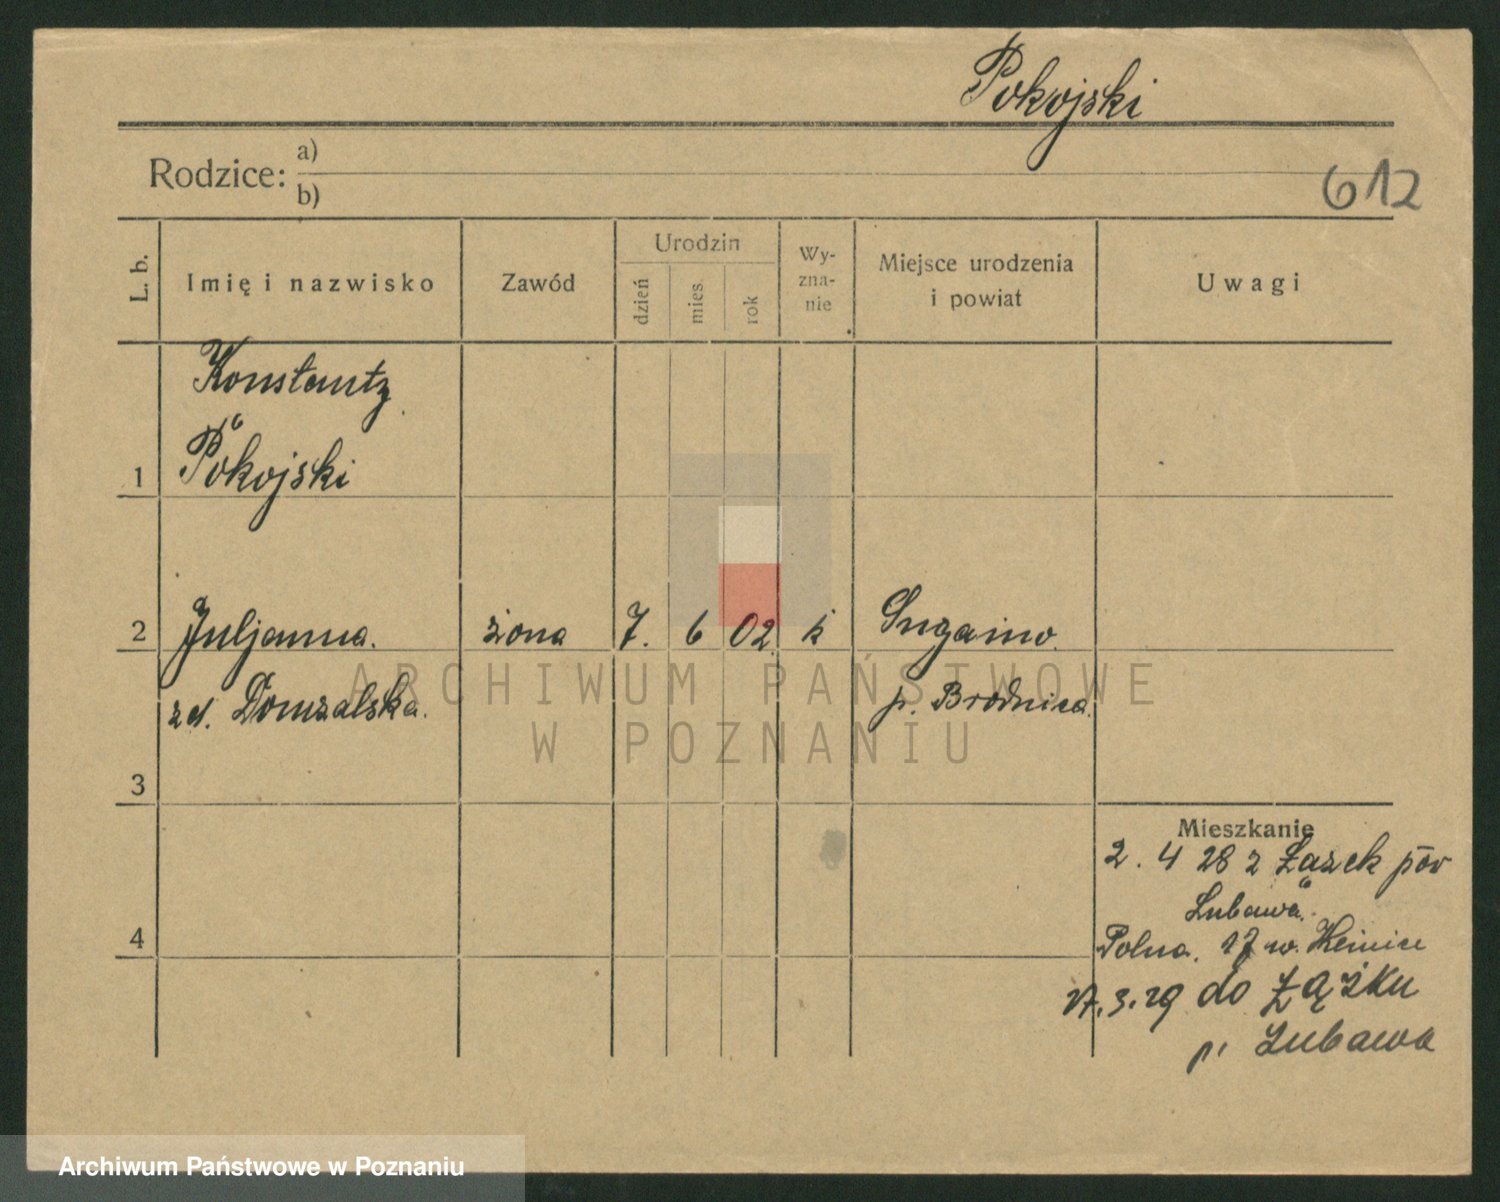 Pokojski
Rodzice: a)
b)
612
L. b. Imię i nazwisko Zawód Urodzin dzień mies. rok Wy-zna-nie Miejsce urodzenia i powiat Uwagi
Konstanty
1 Pokojski
2 Juljanna. żona 7. 6 02 k Gugaino.
zd. Domzalska. p. Brodnica.
3
4
Mieszkanie
2. 4 28 z Łązek pow
Lubawa.
Polna. 17 w.
17.3.29 do Łążku
p. Lubawa
ARCHIWUM PAŃSTWOWE
W POZNANIU
Archiwum Państwowe w Poznaniu